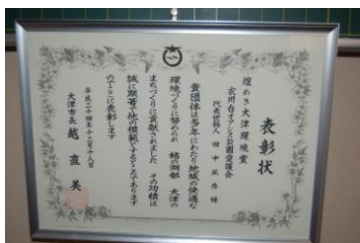 表彰状
煌めき大津環境賞
衣川台オアシス公園愛護会
代表世話人 田中正彦様
貴団体は多年にわたり地域の快適な
環境づくりに努められ 結の湖都 大津の
まちづくりに貢献されました その功績は
誠に顕著で他の模範とするところであります
のでここに表彰します
平成二十四年十二月十八日
大津市長 越直美